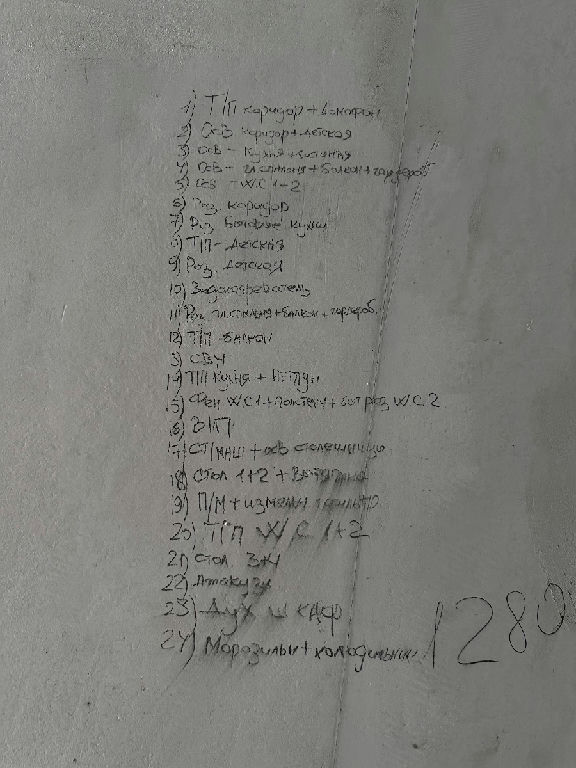 1) Т/П коридор + домофон
2) Осв коридор + детская
3) Осв - Кухня + гостиная
4) Осв - спальня + балкон + гардероб
5) Осв - WC 1+2
6) Роз. коридор
7) Роз. Бытовые кухни
8) Т/П - Детская
9) Роз. Детская
10) Водонагреватель
11) Роз. спальня + балкон + гардероб.
12) Т/П - балкон
13) СВЧ
14) Т/П Кухня + Нептун
15) Фен WC1 + + роз WC2
16) В/П
17) СТ/маш + осв столешницы
18) Стол 1+2 +
19) П/М + измельчитель
20) Т/П WC 1+2
21) Стол 3+4
22) Джакузи
23) Дух шкаф
24) Морозильн + холодильник
1280